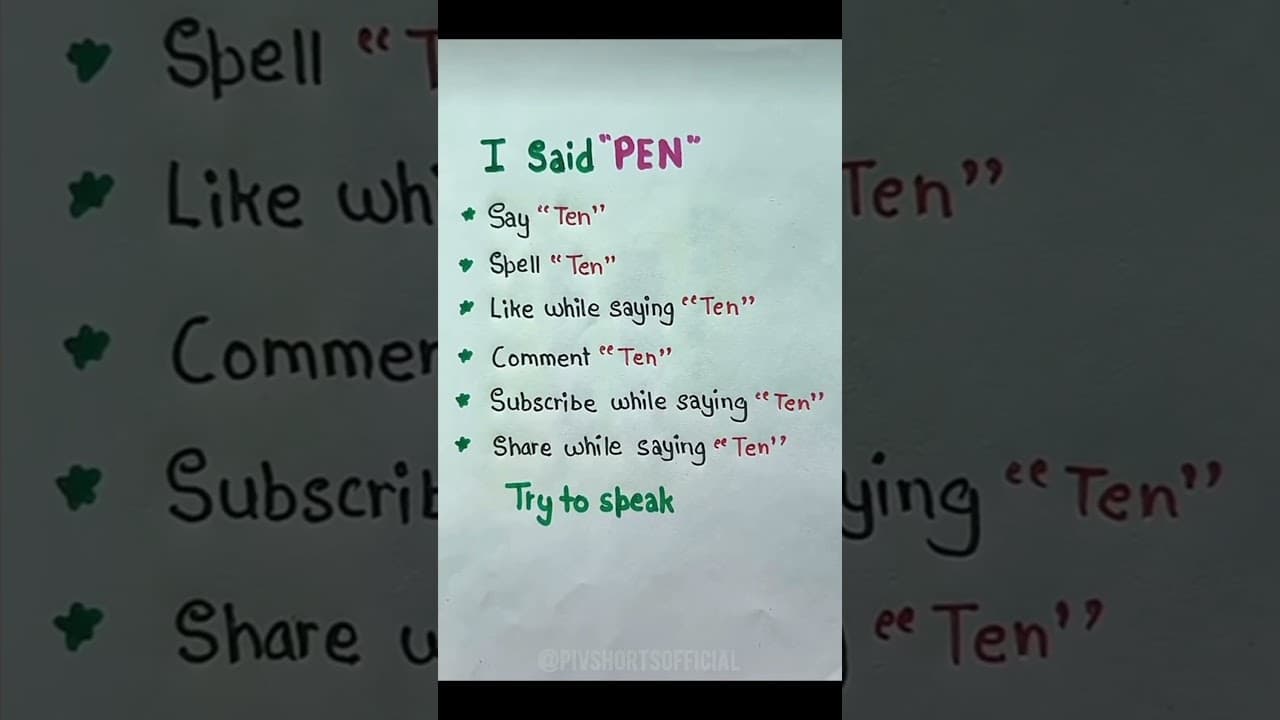 I Said "PEN"
Say "Ten"
Spell "Ten"
Like while saying "Ten"
Comment "Ten"
Subscribe while saying "Ten"
Share while saying "Ten"
Try to speak
@PIVSHORTSOFFICIAL